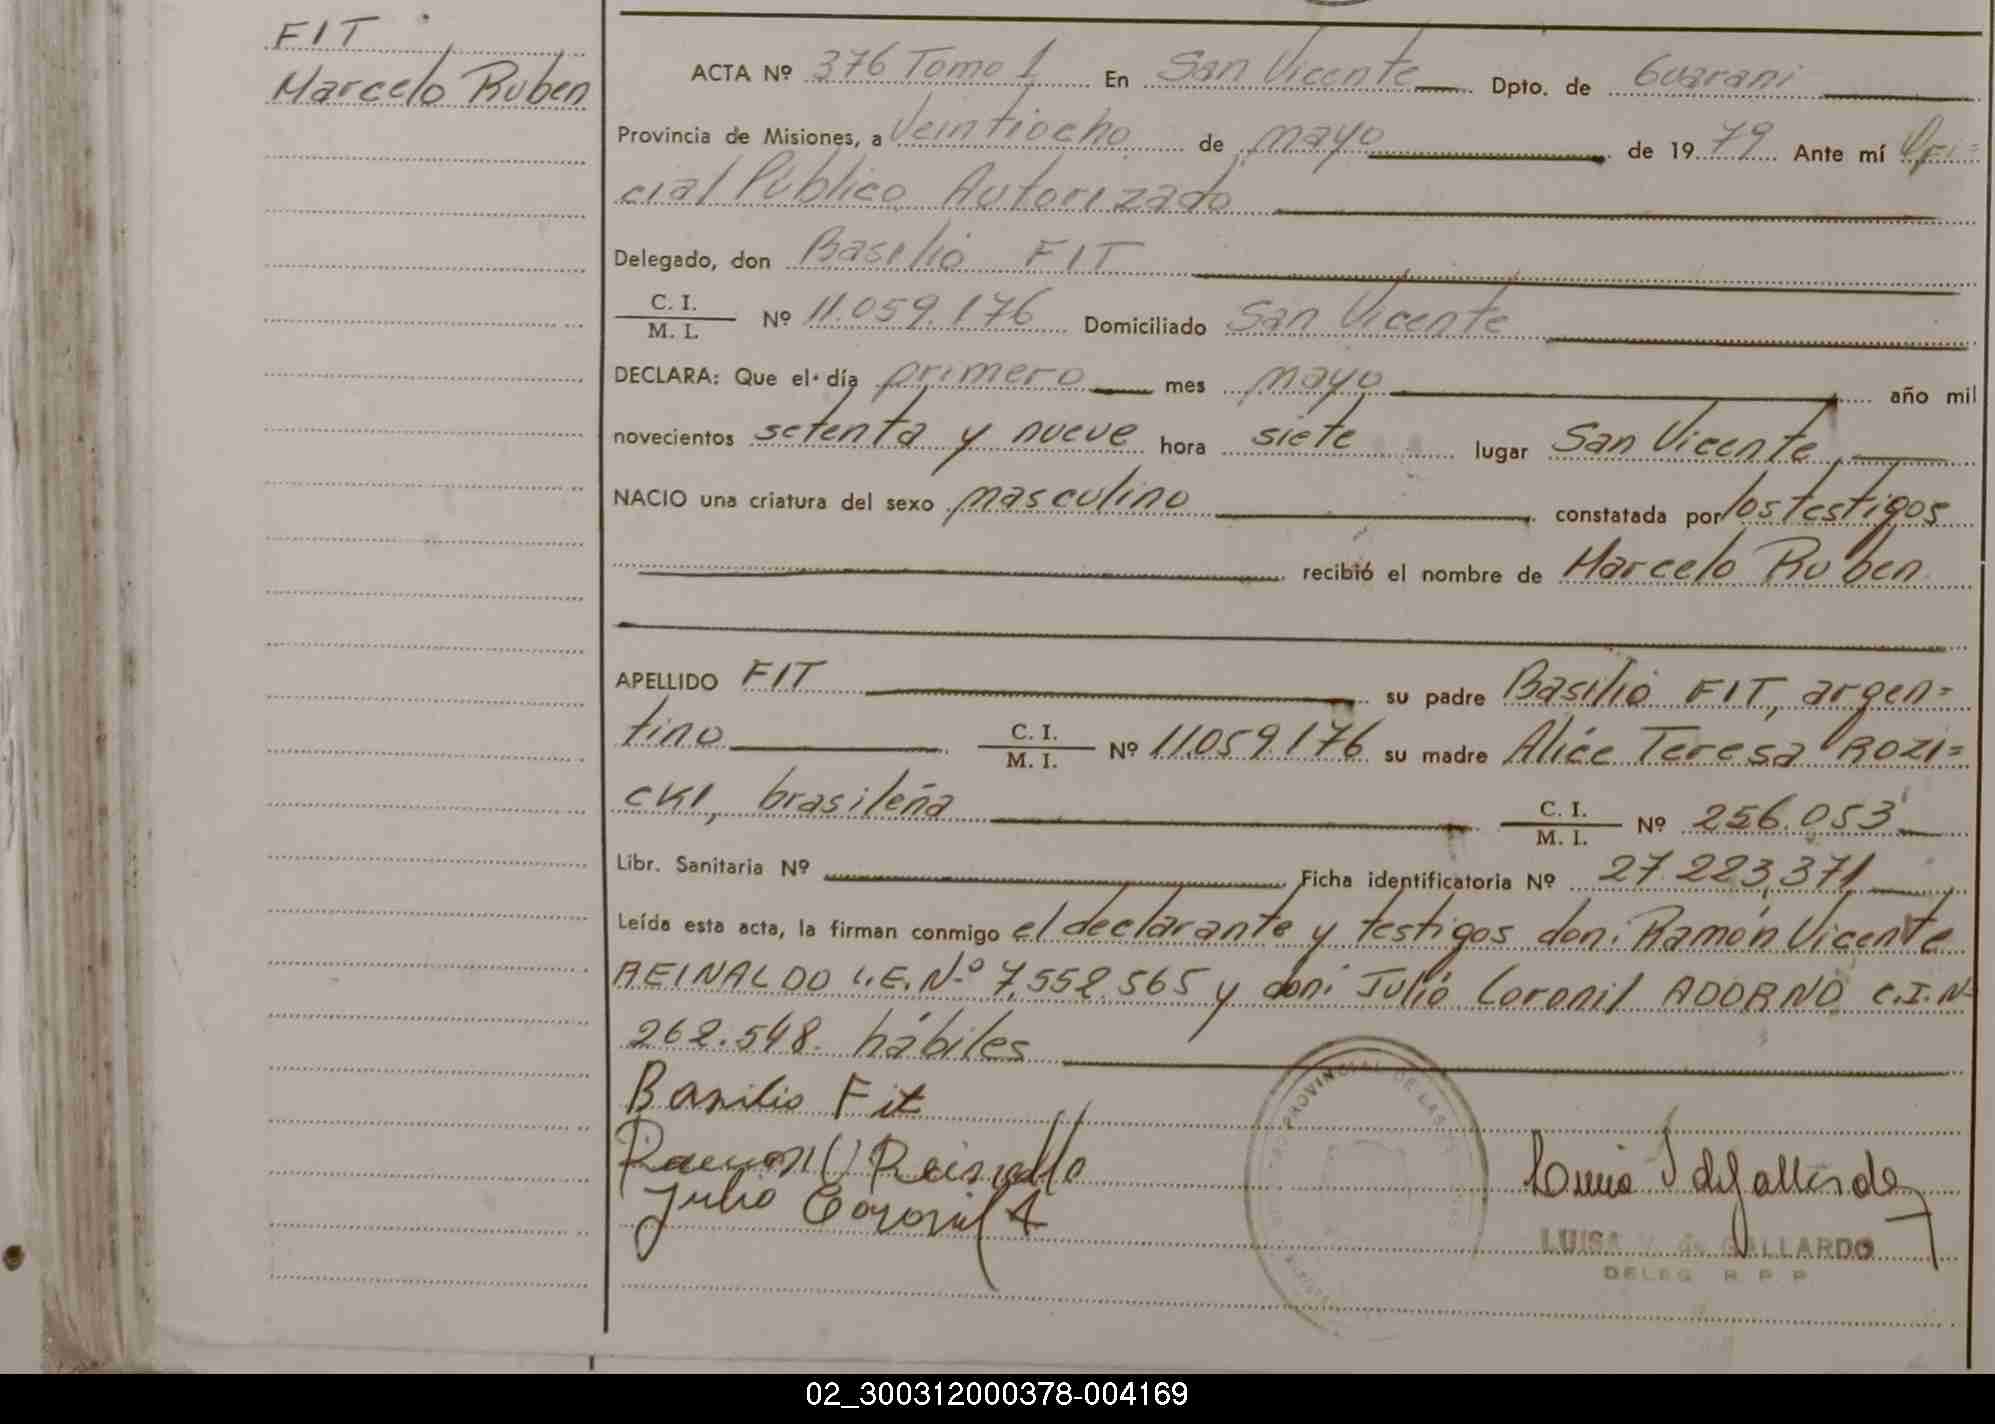 FIT
Marcelo Ruben
ACTA Nº 376 Tomo 1 En San Vicente Dpto. de Guarani
Provincia de Misiones, a Veintiocho de mayo de 1979 Ante mí Ofi=
cial Público Autorizado
Delegado, don Basilio FIT
C. I.
M. I. Nº 11.059.176 Domiciliado San Vicente
DECLARA: Que el día primero mes mayo año mil
novecientos setenta y nueve hora siete lugar San Vicente
NACIO una criatura del sexo masculino constatada por los testigos
recibió el nombre de Marcelo Ruben
APELLIDO FIT su padre Basilio FIT, argen=
tino C. I. M. I. Nº 11.059.176 su madre Alice Teresa ROZI=
CKI, brasileña C. I. M. I. Nº 256.053
Libr. Sanitaria Nº Ficha identificatoria Nº 27.223.371
Leída esta acta, la firman conmigo el declarante y testigos don: Ramón Vicente
REINALDO L.E. Nº 7.552.565 y don: Julio Coronil ADORNO C.I. N
262.548. hábiles
Basilio Fit
Ramon V Reinaldo
Julio Coronil A
PROVINCIAL DE LAS
LUISA V. de GALLARDO
DELEG R P P
02_300312000378-004169